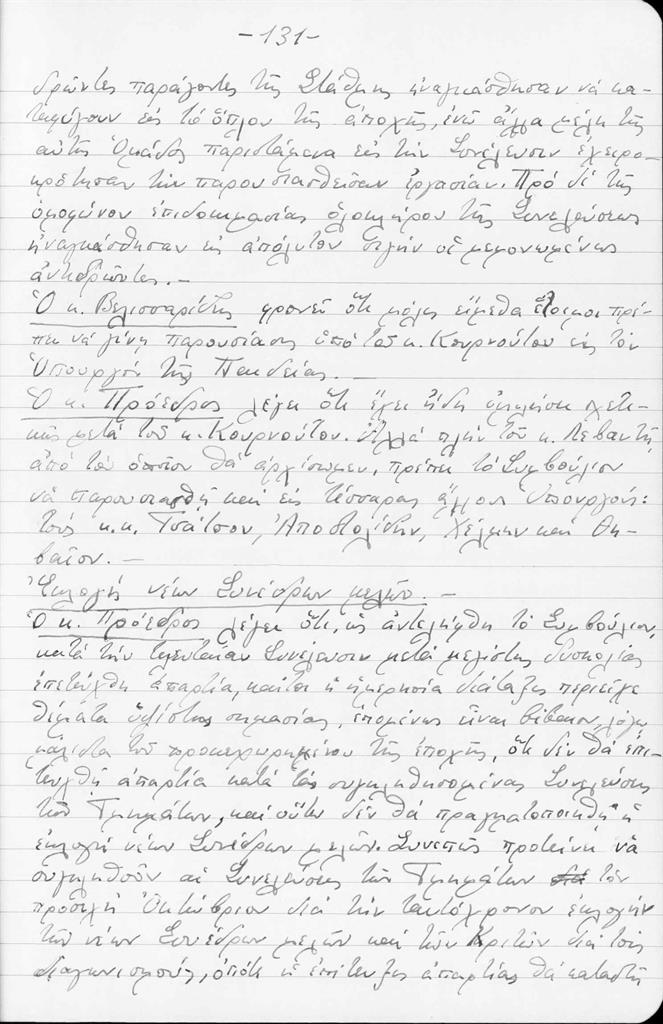 -131-
δρῶντες παράγοντες τῆς Στάθμης ἠναγκάσθησαν νά κα-
ταφύγουν εἰς τό ὅπλον τῆς ἀποχῆς, ἐνῶ ἄλλα μέλη τῆς
αὐτῆς Ὁμάδος παριστάμενα εἰς τήν Συνέλευσιν ἐχειρο-
κρότησαν τήν παρουσιασθεῖσαν ἐργασίαν. Πρό δέ τῆς
ὁμοφώνου ἐπιδοκιμασίας ὁλοκλήρου τῆς Συνελεύσεως
ἠναγκάσθησαν εἰς ἀπόλυτον σιγήν οἱ μεμονωμένως
ἀντιδρῶντες.—
Ὁ κ. Βελισσαρίδης φρονεῖ ὅτι μόλις εἴμεθα ἕτοιμοι πρέ-
πει νά γίνη παρουσίασις ὑπό τοῦ κ. Κουρνούτου εἰς τόν
Ὑπουργόν τῆς Παιδείας.—
Ὁ κ. Πρόεδρος λέγει ὅτι ἔχει ἤδη ὁμιλήσει σχετι-
κῶς μετά τοῦ κ. Κουρνούτου. Ἀλλά πλήν τοῦ κ. Λεβαντῆ,
ἀπό τόν ὁποῖον θά ἀρχίσωμεν, πρέπει τό Συμβούλιον
νά παρουσιασθῆ καί εἰς τέσσαρας ἄλλους Ὑπουργούς:
τούς κ.κ. Τσάτσον, Ἀποστολίδην, Χέλμην καί Θη-
βαῖον.—
Ἐκλογή νέων Συνέδρων μελῶν.—
Ὁ κ. Πρόεδρος λέγει ὅτι, ὡς ἀντελήφθη τό Συμβούλιον,
κατά τήν τελευταίαν Συνέλευσιν μετά μεγίστης δυσκολίας
ἐπετεύχθη ἀπαρτία, καίτοι ἡ ἡμερησία διάταξις περιεῖχε
θέματα ὑψίστης σημασίας, ἑπομένως εἶναι βέβαιον, λόγω
μάλιστα τοῦ προκεχωρημένου τῆς ἐποχῆς, ὅτι δέν θά ἐπι-
τευχθῆ ἀπαρτία κατά τάς συγκληθησομένας Συνελεύσεις
τῶν Τμημάτων, καί οὕτω δέν θά πραγματοποιηθῆ ἡ
ἐκλογή νέων Συνέδρων μελῶν. Συνεπῶς προτείνει νά
συγκληθοῦν αἱ Συνελεύσεις τῶν Τμημάτων τόν
προσεχῆ Ὀκτώβριον διά τήν ταυτόχρονον ἐκλογήν
τῶν νέων Συνέδρων μελῶν καί τῶν Κριτῶν διά τούς
διαγωνισμούς, ὁπότε ἡ ἐπίτευξις ἀπαρτίας θά καταστῆ